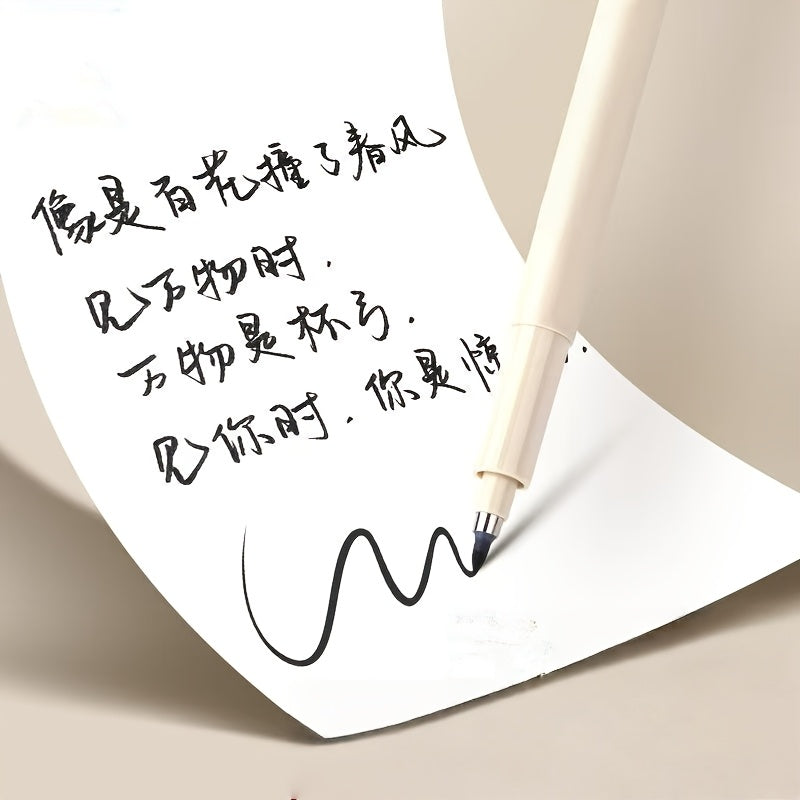 像是百花撞了春风
见万物时.
万物是杯弓.
见你时.你是惊